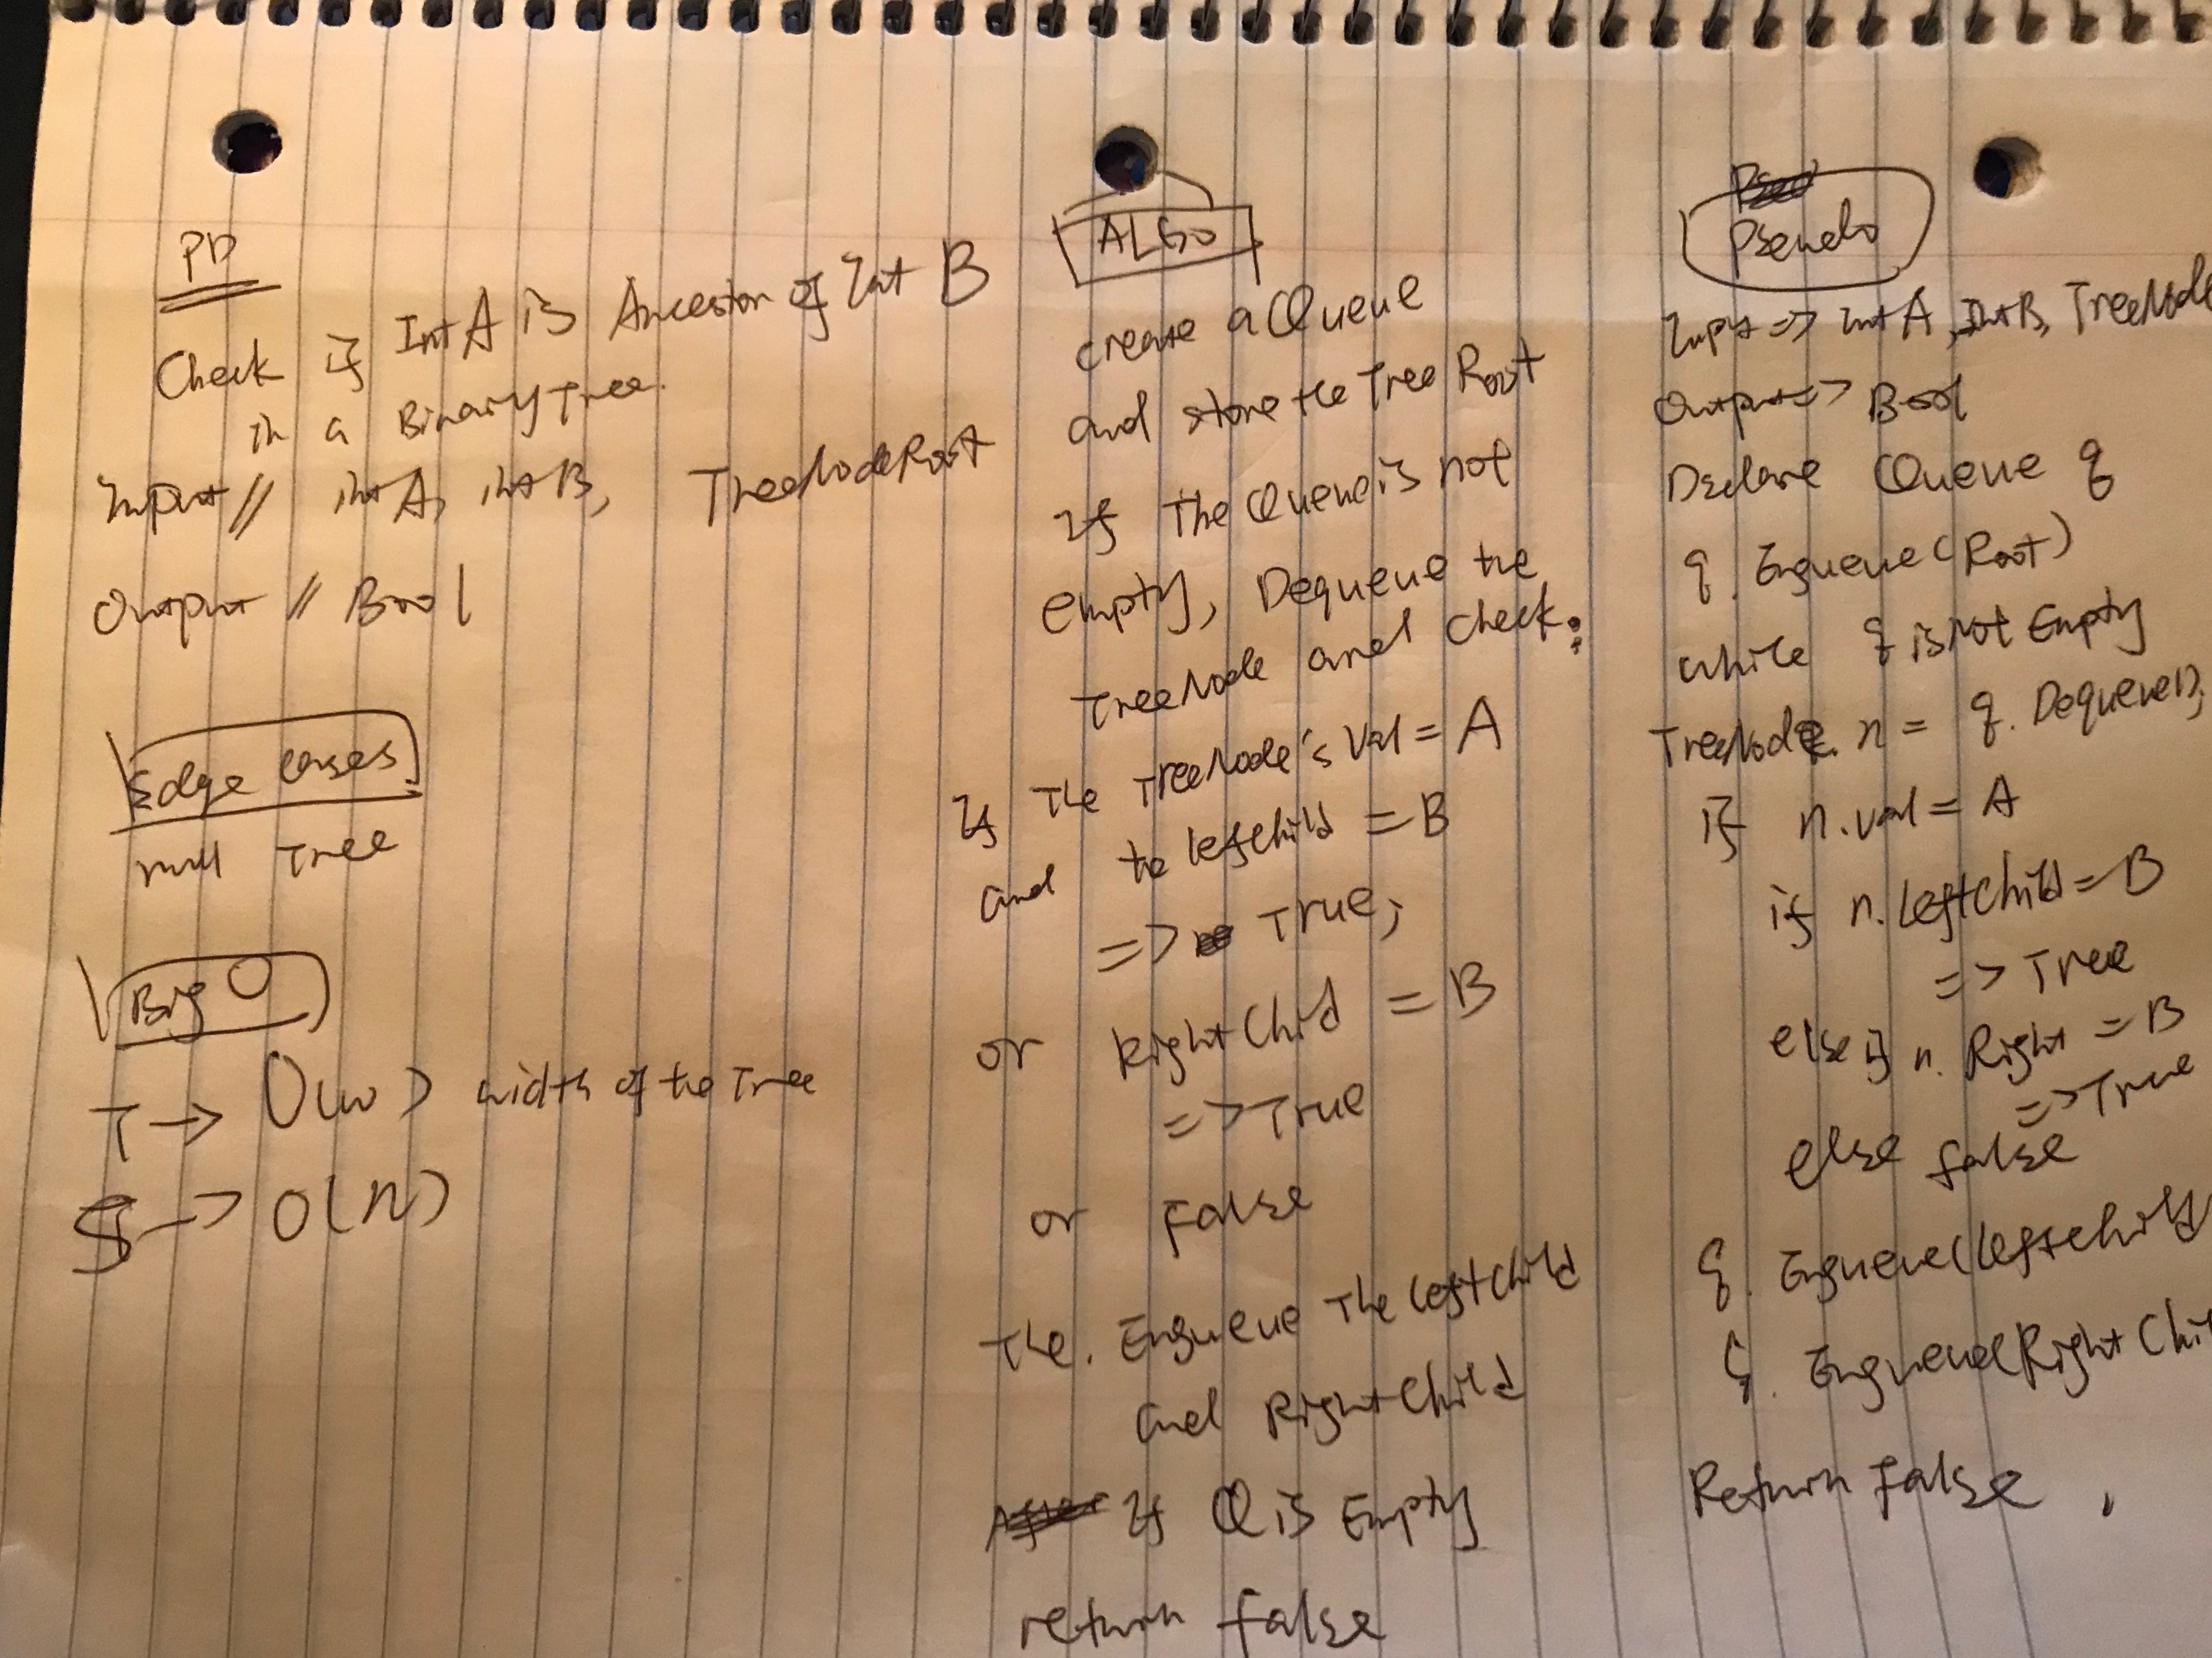 PD
Check if Int A is Ancestor of Int B
in a Binary Tree.
Input // int A, int B, TreeNode Root
Output // Bool
Edge cases
null Tree
Big O
T -> O(w) width of the Tree
S -> O(n)
ALGO
create a Queue
and store the Tree Root
If The Queue is not
empty, Dequeue the
TreeNode and check:
If The TreeNode's Val = A
and the leftchild = B
=> True;
or RightChild = B
=> True
or False
The. Enqueue The leftchild
and RightChild
If Q is Empty
return false
Pseudo
Input => Int A, Int B, TreeNode
Output => Bool
Declare Queue q
q. Enqueue (Root)
while q is Not Empty
TreeNode n = q. Dequeue();
if n.val = A
if n. leftchild = B
=> Tree
else if n. Right = B
=> True
else false
q. Enqueue(leftchild
q. Enqueue(Right Chi
Return False.